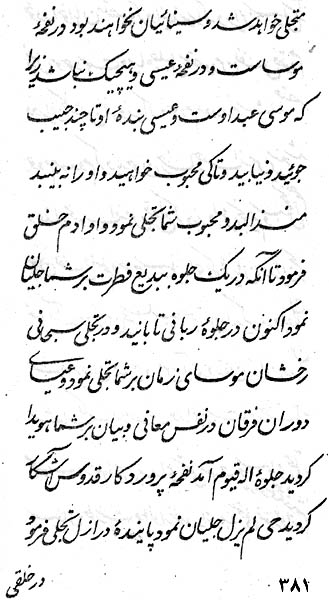 متجلی خواهد شد و سینائیان نخواهند بود در نفخهٔ
موسا ست و در نفخهٔ عیسی و هیچیک نباشد زیرا
که موسی عبد اوست و عیسی بندهٔ او تا چند حبیب
جوئید و نیابید و تا کی محبوب خواهید و او را نه بینید
منزا لبد و محبوب شما تجلی نمود و اوادم خلق
فرمود تا آنکه در یک جلوه ببدیع فطرت بر شما جلیان
نمود اکنون در جلوهٔ ربانی تا بانید و در تجلی سبحانی
رخشان موسای زمان بر شما تجلی نمود و عیسای
دوران فرقان در نفس معانی و بیان بر شما هویدا
کردید جلوهٔ اله قیوم آمد نفخهٔ پروردکار قدوس آشکار
کردید حی لم یزل جلیان نمود پایندهٔ در ازل تجلی فرمود
۳۸۱
در خلقی